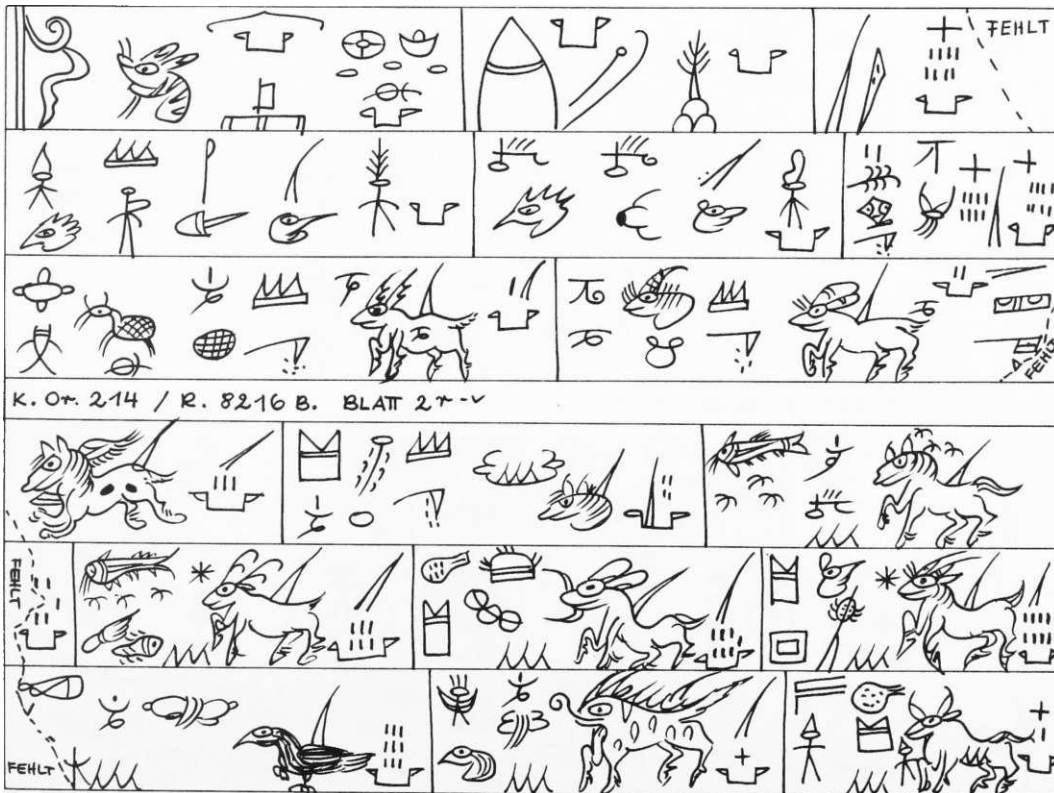 FEHLT
FEHLT
K. Or. 214 / R. 8216 B. BLATT 2 r-v
FEHLT
FEHLT